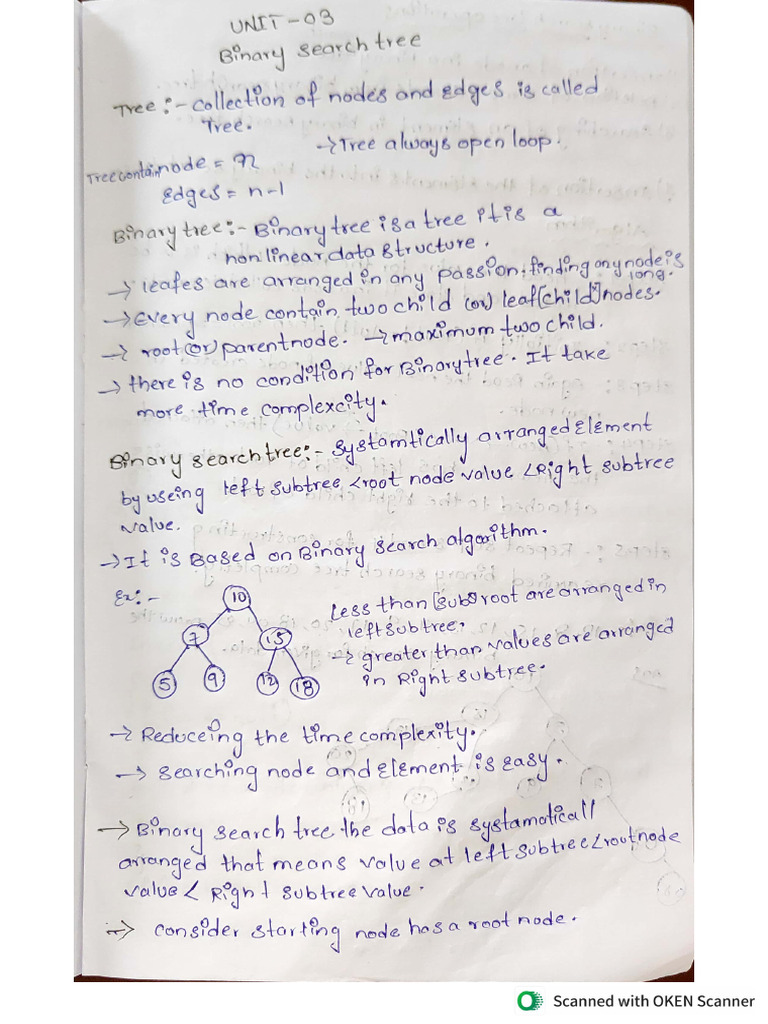 UNIT-03
Binary search tree
Tree:- collection of nodes and edges is called
Tree.
→Tree always open loop.
Tree contain node = n
Edges = n-1
Binary tree:- Binary tree is a tree it is a
non linear, data structure.
→ leafes are arranged in any passion, finding any node is
long.
→ Every node contain two child (or) leaf [child] nodes.
→ root (or) parent node. → maximum two child.
→ there is no condition for Binary tree. It take
more time complexcity.
Binary search tree:- systamtically arranged Element
by using left subtree <root node value <Right subtree
value.
→ It is Based on Binary search algorithm.
Ex:-
10
7
15
5
9
12
18
Less than [sub] root are arranged in
left subtree.
→ greater than values are arranged
in Right subtree.
→ Reduceing the time complexity.
→ searching node and Element is easy.
→ Binary search tree the data is systamaticall
arranged that means value at left subtree <rout node
value < Right subtree value.
→ consider starting node has a root node.
Scanned with OKEN Scanner